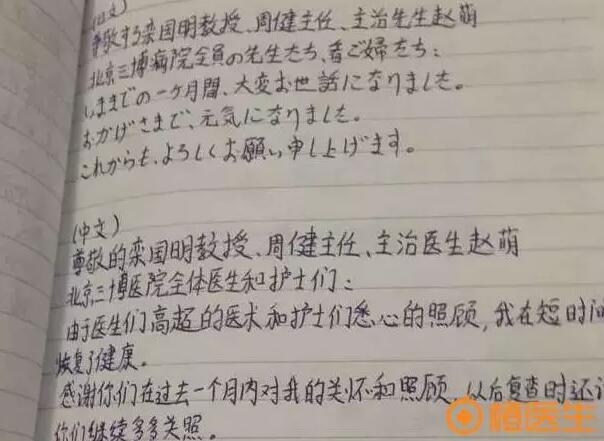 (日文)
尊敬する栾国明教授、周健主任、主治先生赵萌
北京三博病院全員の先生たち、看ご婦たち:
いままでの一ヶ月間、大変お世話になりました。
おかげさまで、元気になりました。
これからも、よろしくお願い申し上げます。
(中文)
尊敬的栾国明教授、周健主任、主治医生赵萌
北京三博医院全体医生和护士们:
由于医生们高超的医术和护士们悉心的照顾,我在短时间
恢复了健康。
感谢你们在过去一个月内对我的关怀和照顾,以后复查时还
你们继续多多关照。
植医生